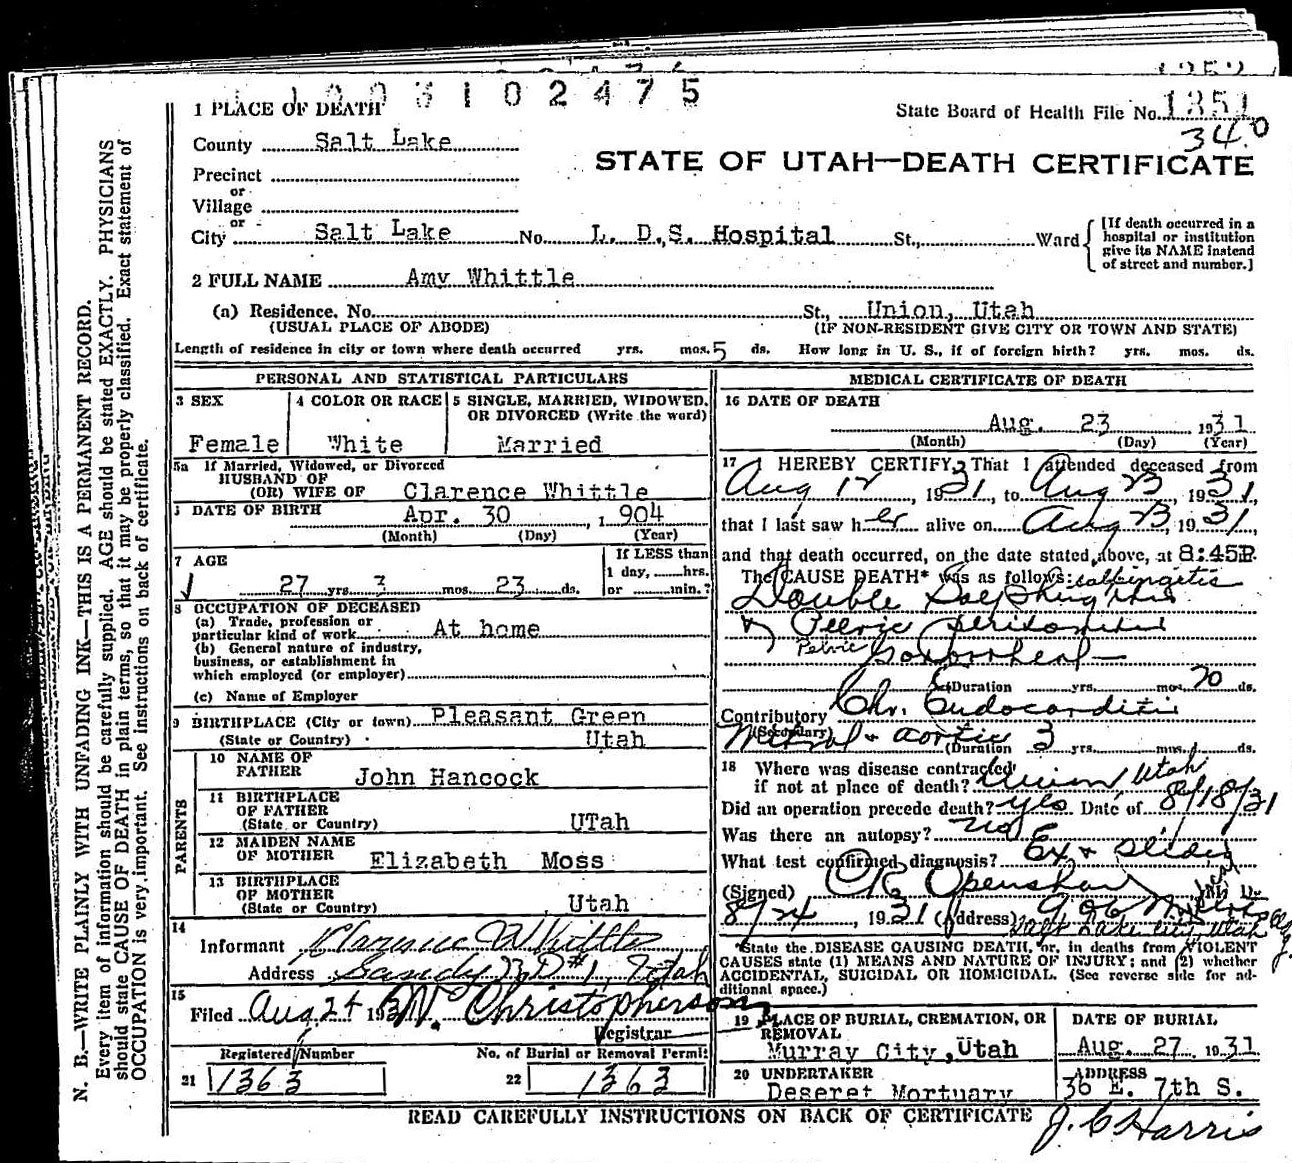 1003102475
1 PLACE OF DEATH
State Board of Health File No. 1351
340
County Salt Lake
STATE OF UTAH—DEATH CERTIFICATE
Precinct
or
Village
or
City Salt Lake No. L. D.S. Hospital St., Ward
[If death occurred in a
hospital or institution
give its NAME instead
of street and number.]
2 FULL NAME Amy Whittle
(a) Residence. No. St., Union, Utah
(USUAL PLACE OF ABODE) (IF NON-RESIDENT GIVE CITY OR TOWN AND STATE)
Length of residence in city or town where death occurred yrs. mos. 5 ds. How long in U. S., if of foreign birth? yrs. mos. ds.
PERSONAL AND STATISTICAL PARTICULARS
3 SEX
Female
4 COLOR OR RACE
White
5 SINGLE, MARRIED, WIDOWED,
OR DIVORCED (Write the word)
Married
5a If Married, Widowed, or Divorced
HUSBAND OF
(OR) WIFE OF Clarence Whittle
DATE OF BIRTH Apr. 30, 1904
(Month) (Day) (Year)
7 AGE
27 yrs 3 mos 23 ds.
If LESS than
1 day, hrs.
or min.?
8 OCCUPATION OF DECEASED
(a) Trade, profession or
particular kind of work At home
(b) General nature of industry,
business, or establishment in
which employed (or employer)
(c) Name of Employer
9 BIRTHPLACE (City or town) Pleasant Green
(State or Country) Utah
PARENTS
10 NAME OF
FATHER John Hancock
11 BIRTHPLACE
OF FATHER
(State or Country) UTah
12 MAIDEN NAME
OF MOTHER Elizabeth Moss
13 BIRTHPLACE
OF MOTHER
(State or Country) Utah
14
Informant Clarence Whittle
Address Sandy R D #1, Utah
15
Filed Aug 24 193 Christopherson
Registrar
Registered Number
21 1363
No. of Burial or Removal Permit
22 1363
MEDICAL CERTIFICATE OF DEATH
16 DATE OF DEATH
Aug. 23 1931
(Month) (Day) (Year)
17 I HEREBY CERTIFY, That I attended deceased from
Aug 12, 1931, to Aug 23 1931,
that I last saw her alive on Aug 23, 1931,
and that death occurred, on the date stated above, at 8:45P.
The CAUSE DEATH* was as follows: salpingitis
Double Salpingitis
& Pelvic peritonitis
Pelvic Gonorrheal
(Duration yrs. mos. 20 ds.
Contributory Chr. Endocarditis
(Secondary)
Mitral & aortic (Duration 3 yrs. mos. ds.
18 Where was disease contracted
if not at place of death? Union, Utah
Did an operation precede death? yes Date of 8/18/31
Was there an autopsy? no
What test confirmed diagnosis? Ex & slides
(Signed) Openshaw M. D.
8/24, 1931 (Address) 906 Med Arts Bldg
Salt Lake City Utah
*State the DISEASE CAUSING DEATH, or, in deaths from VIOLENT
CAUSES state (1) MEANS AND NATURE OF INJURY; and (2) whether
ACCIDENTAL, SUICIDAL OR HOMICIDAL. (See reverse side for ad-
ditional space.)
19 PLACE OF BURIAL, CREMATION, OR
REMOVAL
Murray City, Utah
DATE OF BURIAL
Aug. 27 1931
20 UNDERTAKER
Deseret Mortuary
ADDRESS
36 E. 7th S.
READ CAREFULLY INSTRUCTIONS ON BACK OF CERTIFICATE
J. C Harris
N. B.—WRITE PLAINLY WITH UNFADING INK—THIS IS A PERMANENT RECORD.
Every item of information should be carefully supplied. AGE should be stated EXACTLY. PHYSICIANS
should state CAUSE OF DEATH in plain terms, so that it may be properly classified. Exact statement of
OCCUPATION is very important. See instructions on back of certificate.